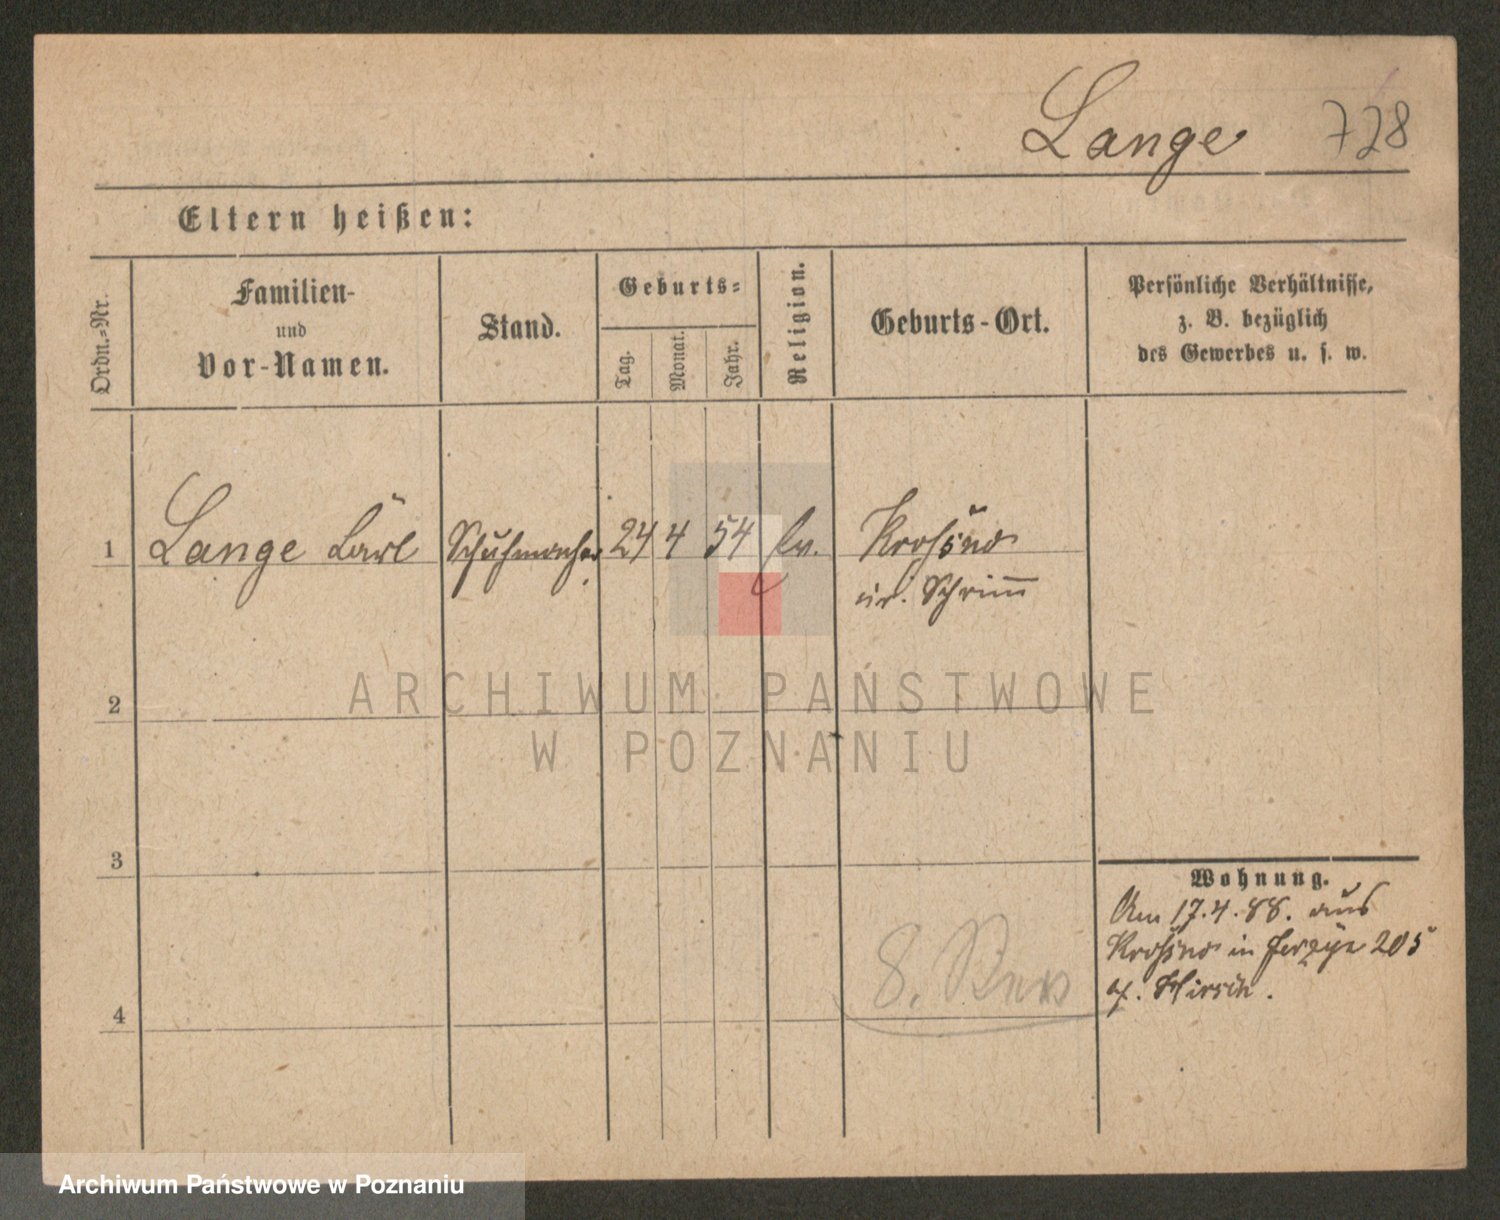 Lange 728
Eltern heißen:
Ordn.-Nr.
Familien-
und
Vor-Namen.
Stand.
Geburts-
Tag.
Monat.
Jahr.
Religion.
Geburts-Ort.
Persönliche Verhältnisse,
z. B. bezüglich
des Gewerbes u. s. w.
1 Lange Carl Schuhmacher 24 4 54 Ev. Krosno
Kr. Schrimm
2
3
4
Wohnung.
Am 17.4.88. aus
Krosno in Jerzyce 205
b. Hirsch.
8. Rev
ARCHIWUM PAŃSTWOWE
W POZNANIU
Archiwum Państwowe w Poznaniu